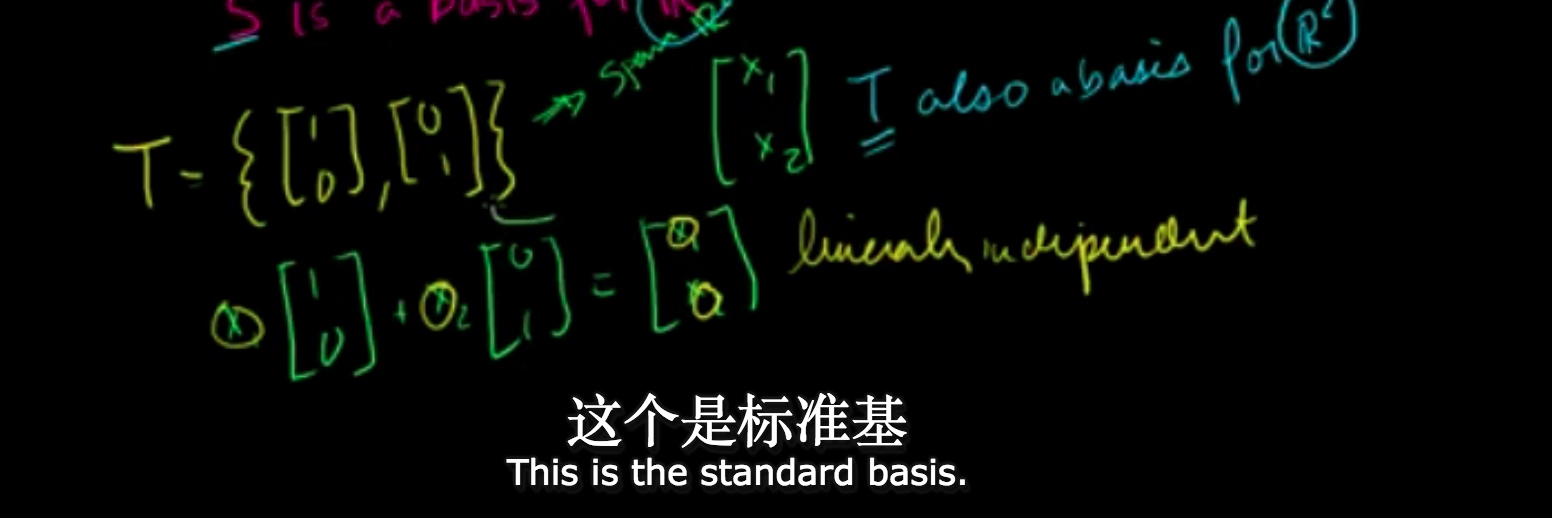 S is a basis for ℝ²
T = {[1 0], [0 1]} → Span ℝ² [x₁ x₂] T also a basis for ℝ²
x₁ [1 0] + x₂ [0 1] = [0 0] linearly independent
这个是标准基
This is the standard basis.